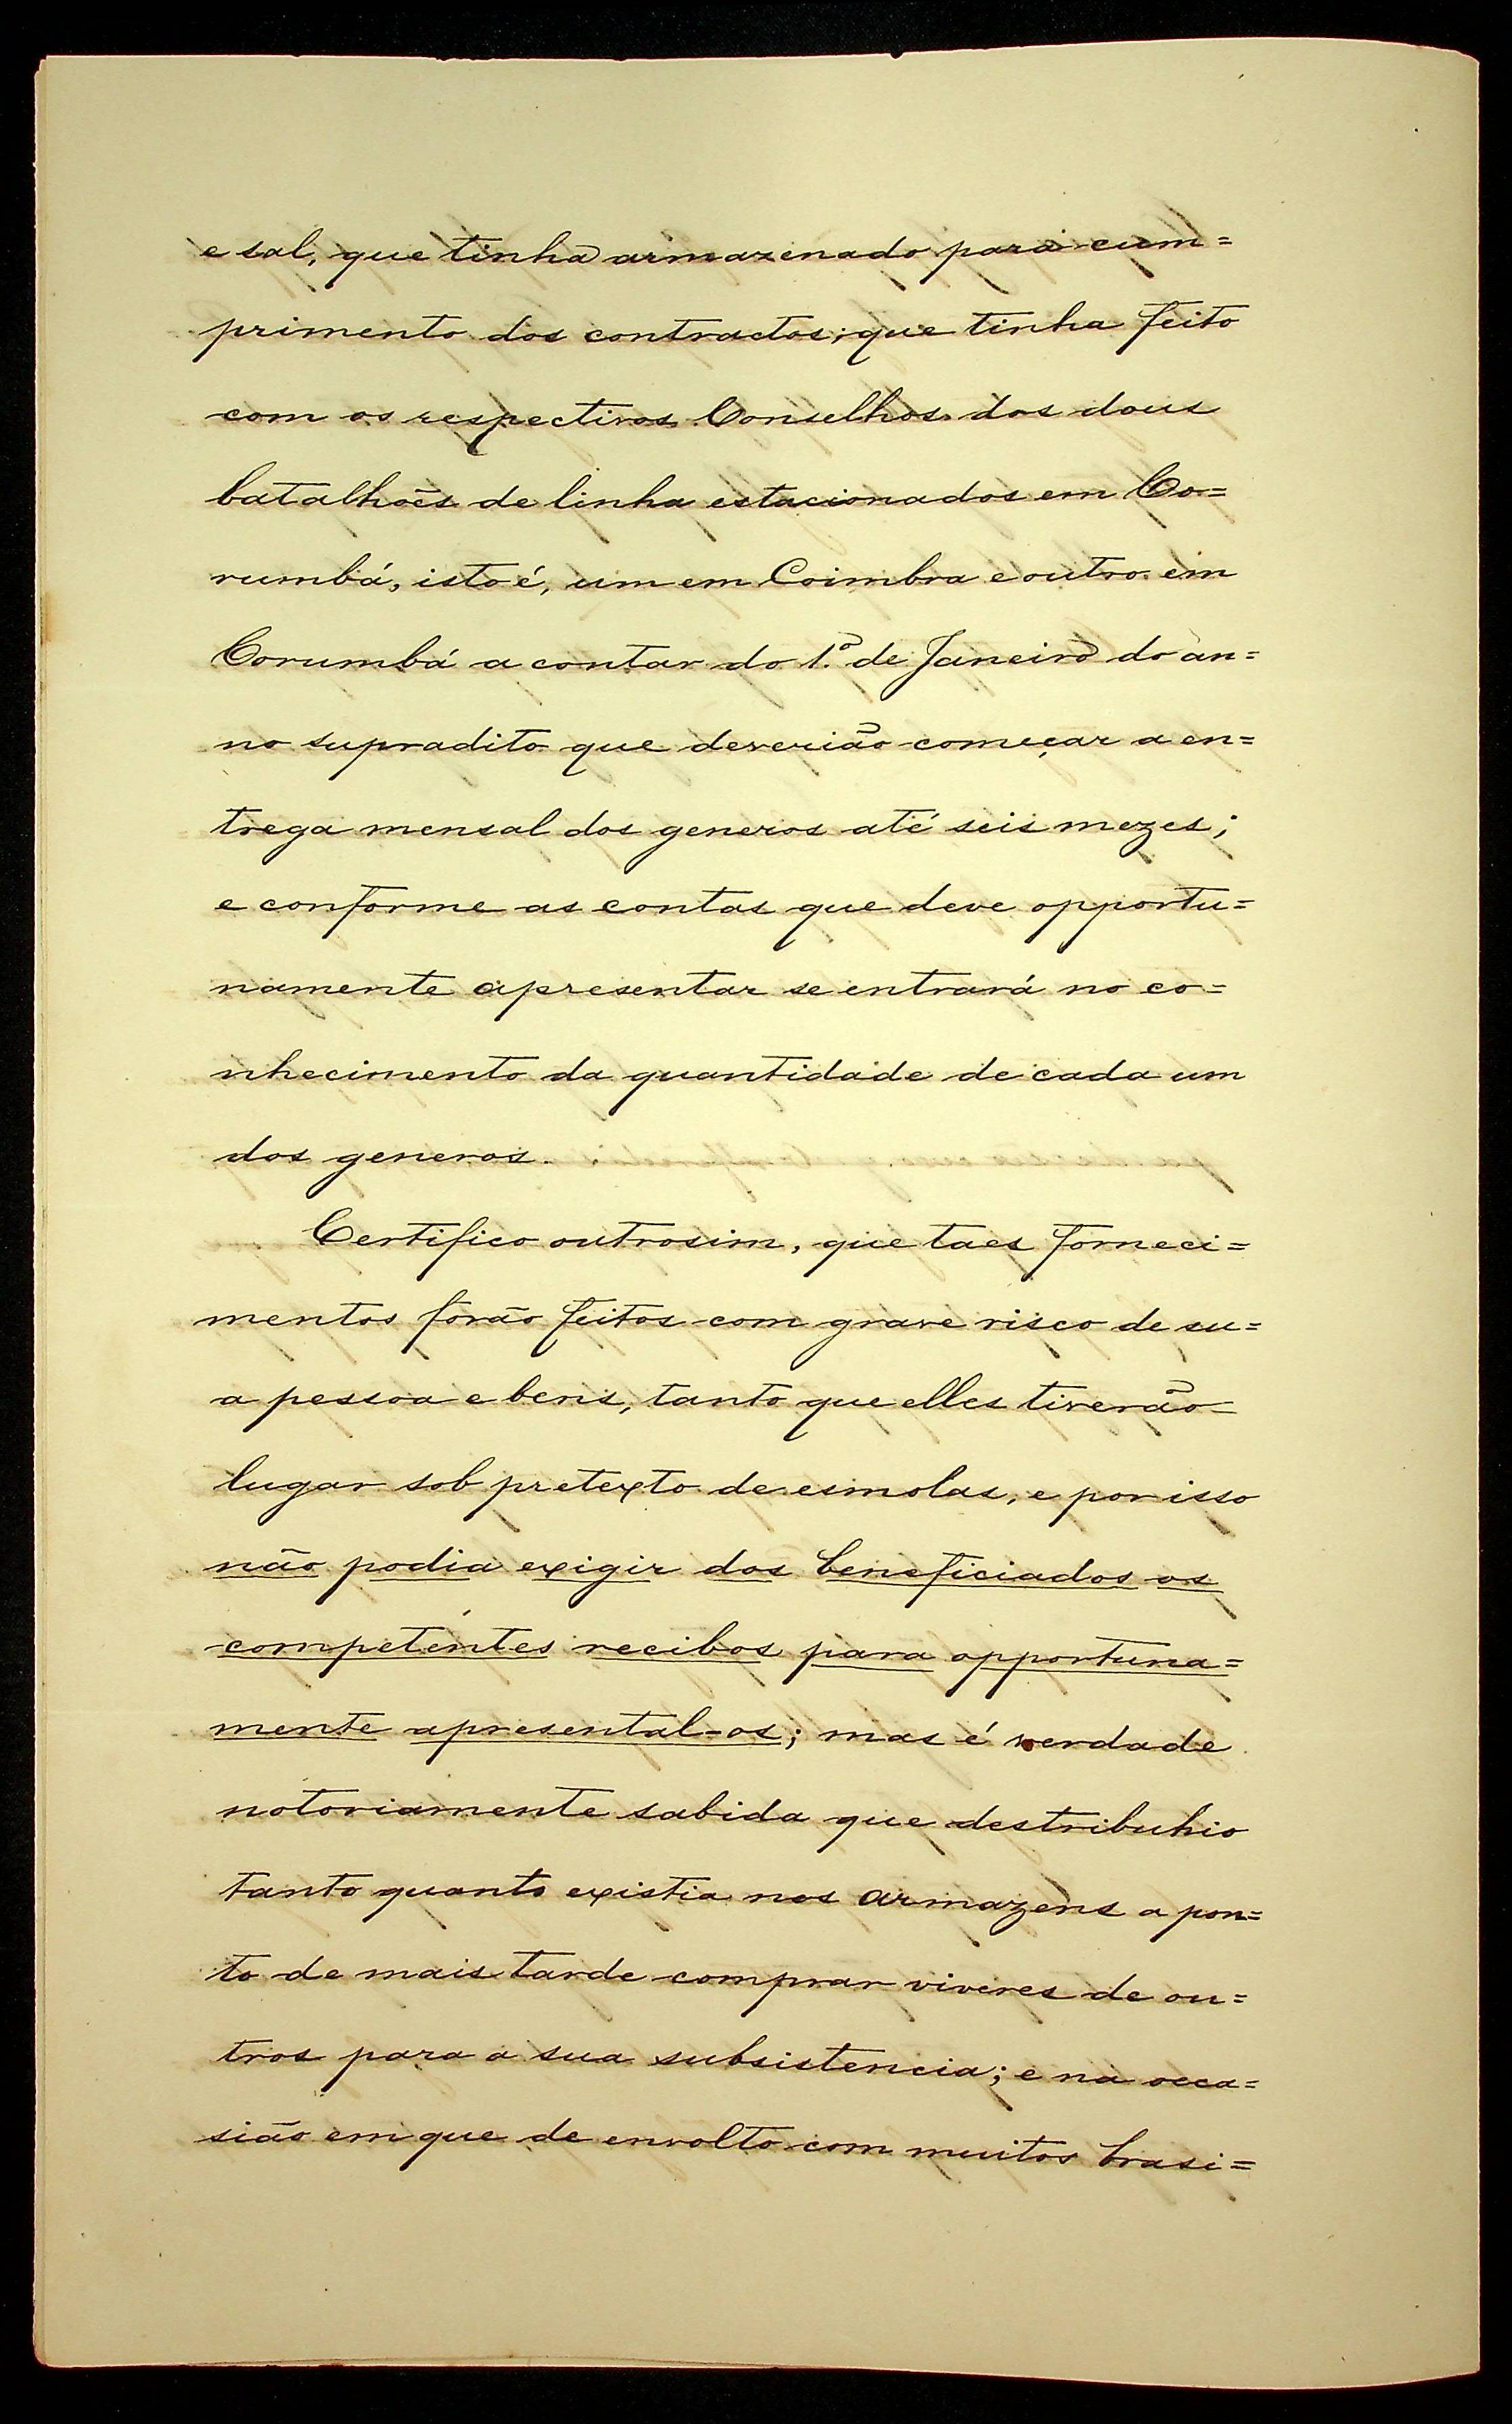 e sal, que tinha armazenado para cum=
primento dos contractos, que tinha feito
com os respectivos Conselhos dos dous
batalhões de linha estacionados em Co=
rumbá, isto é, um em Coimbra e outro em
Corumbá a contar do 1.º de Janeiro do an=
no supradito que deverião começar a en=
trega mensal dos generos até seis mezes;
e conforme as contas que deve opportu=
namente apresentar se entrará no co=
nhecimento da quantidade de cada um
dos generos.
Certifico outrosim, que taes forneci=
mentos forão feitos com grave risco de su=
a pessoa e bens, tanto que elles tiverão
lugar sob pretexto de esmolas, e por isso
não podia exigir dos beneficiados os
competentes recibos para opportuna=
mente apresental-os; mas é verdade
notoriamente sabida que destribuhio
tanto quanto existia nos armazens a pon=
to de mais tarde comprar viveres de ou=
tros para a sua subsistencia; e na occa=
sião em que de envolto com muitos brasi=